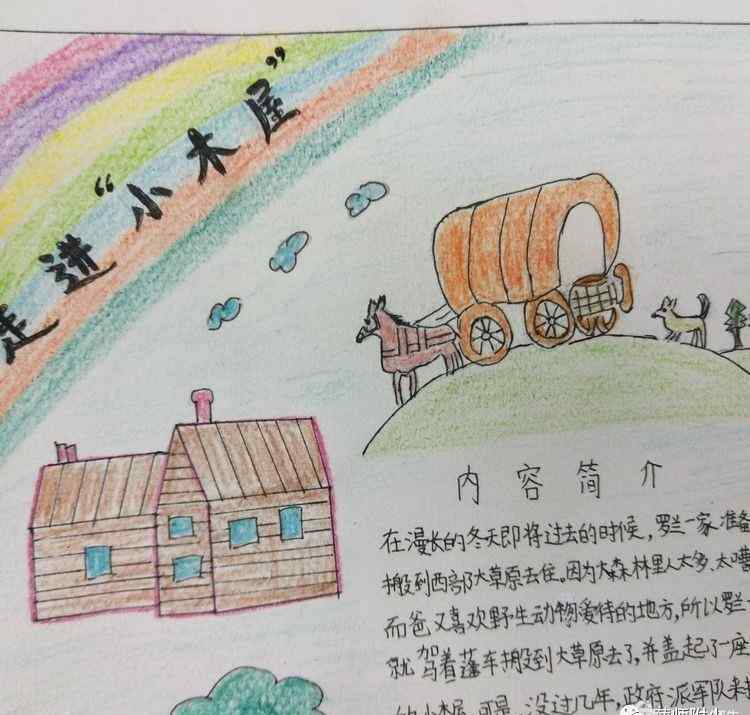 走进“小木屋”
内容简介
在漫长的冬天即将过去的时候，罗兰一家准备
搬到西部大草原去住，因为大森林里人太多、太嘈
而爸又喜欢野生动物爱待的地方，所以罗兰一
就驾着蓬车搬到大草原去了，并盖起了一座
的小木屋，可是，没过几年，政府派军队来